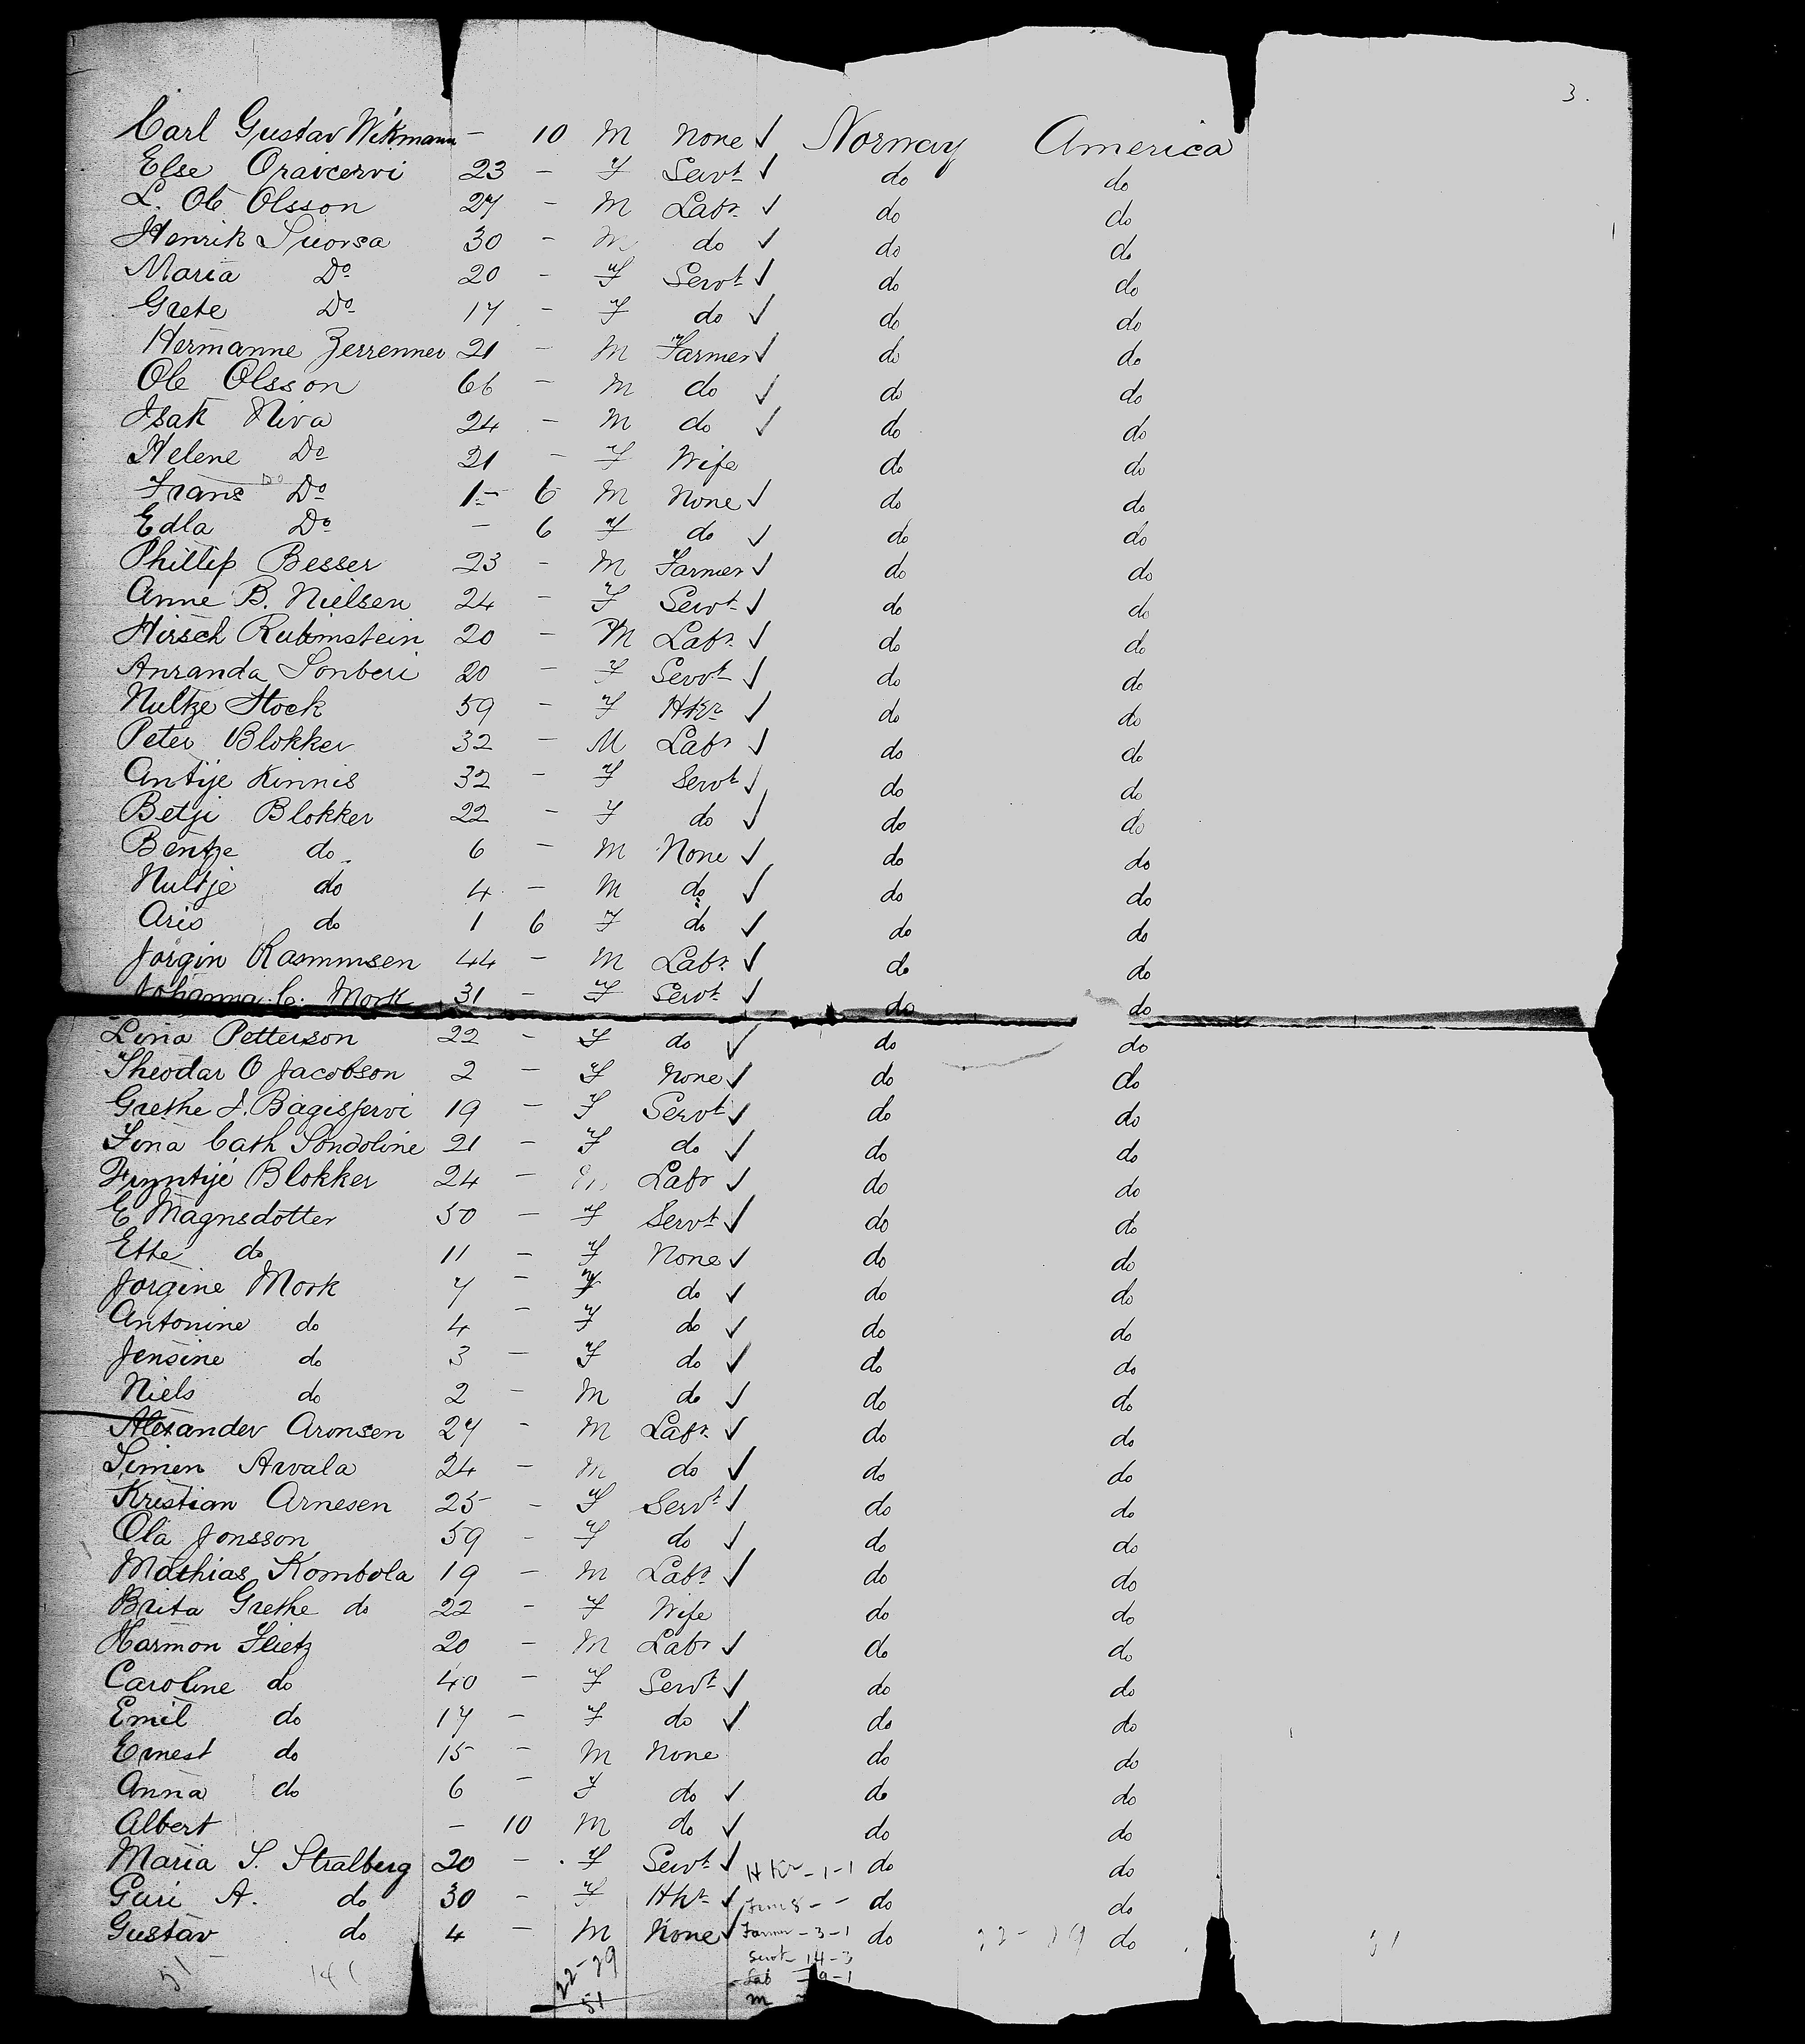 3.
Carl Gustav Wikmann - 10 M None ✓ Norway America
Else Oraicervi 23 - F Servt ✓ do do
L. Ole Olsson 27 - M Labr ✓ do do
Henrik Suorsa 30 - M do ✓ do do
Maria Do 20 - F Servt ✓ do do
Grete Do 17 - F do ✓ do do
Hermanne Zerrenner 21 - M Farmer ✓ do do
Ole Olsson 66 - M do ✓ do do
Isak Niva 24 - M do ✓ do do
Helene Do 21 - F Wife do do
Frans Do 1 - 6 M None ✓ do do
Edla Do - 6 F do ✓ do do
Phillip Besser 23 - M Farmer ✓ do do
Anne B. Nielsen 24 - F Servt ✓ do do
Hirsch Rubinstein 20 - M Labr ✓ do do
Anranda Sonberi 20 - F Servt ✓ do do
Nultze Stock 59 - F HKr ✓ do do
Peter Blokker 32 - M Labr ✓ do do
Antije Kinnis 32 - F Servt ✓ do do
Betji Blokker 22 - F do ✓ do do
Bentje do 6 - M None ✓ do do
Nultje do 4 - M do ✓ do do
Aris do 1 6 F do ✓ do do
Jorgin Rasmmsen 44 - M Labr ✓ do do
Johanna C. Mork 31 - F Servt ✓ do do
Lina Petterson 22 - F do ✓ do do
Theodar O Jacobson 2 - F None ✓ do do
Grethe J. Bagisjervi 19 - F Servt ✓ do do
Fina Cath Sondoline 21 - F do ✓ do do
Fryntije Blokker 24 - M Labr ✓ do do
E Magnsdotter 50 - F Servt ✓ do do
Ette do 11 - F None ✓ do do
Jorgine Mork 7 - F do ✓ do do
Antonine do 4 - F do ✓ do do
Jensine do 3 - F do ✓ do do
Niels do 2 - M do ✓ do do
Alexander Aronsen 27 - M Labr ✓ do do
Simen Arvala 24 - M do ✓ do do
Kristian Arnesen 25 - F Servt ✓ do do
Ola Jonsson 59 - F do ✓ do do
Mathias Kombola 19 - M Labr ✓ do do
Brita Grethe do 22 - F Wife do do
Harmon Flietz 20 - M Labr ✓ do do
Caroline do 40 - F Servt ✓ do do
Emil do 17 - F do ✓ do do
Ernest do 15 - M None do do
Anna do 6 - F do ✓ do do
Albert - 10 M do ✓ do do
Maria S. Stralberg 20 - F Servt ✓ H Kr - 1 - 1 do do
Guri A. do 30 - F Hkr ✓ do do
Gustav do 4 - M None ✓ Farmer - 3 - 1 do 22 - 29 do 51
Servt - 14 - 3
51 22 - 29 Lab - 9 - 1
51 M